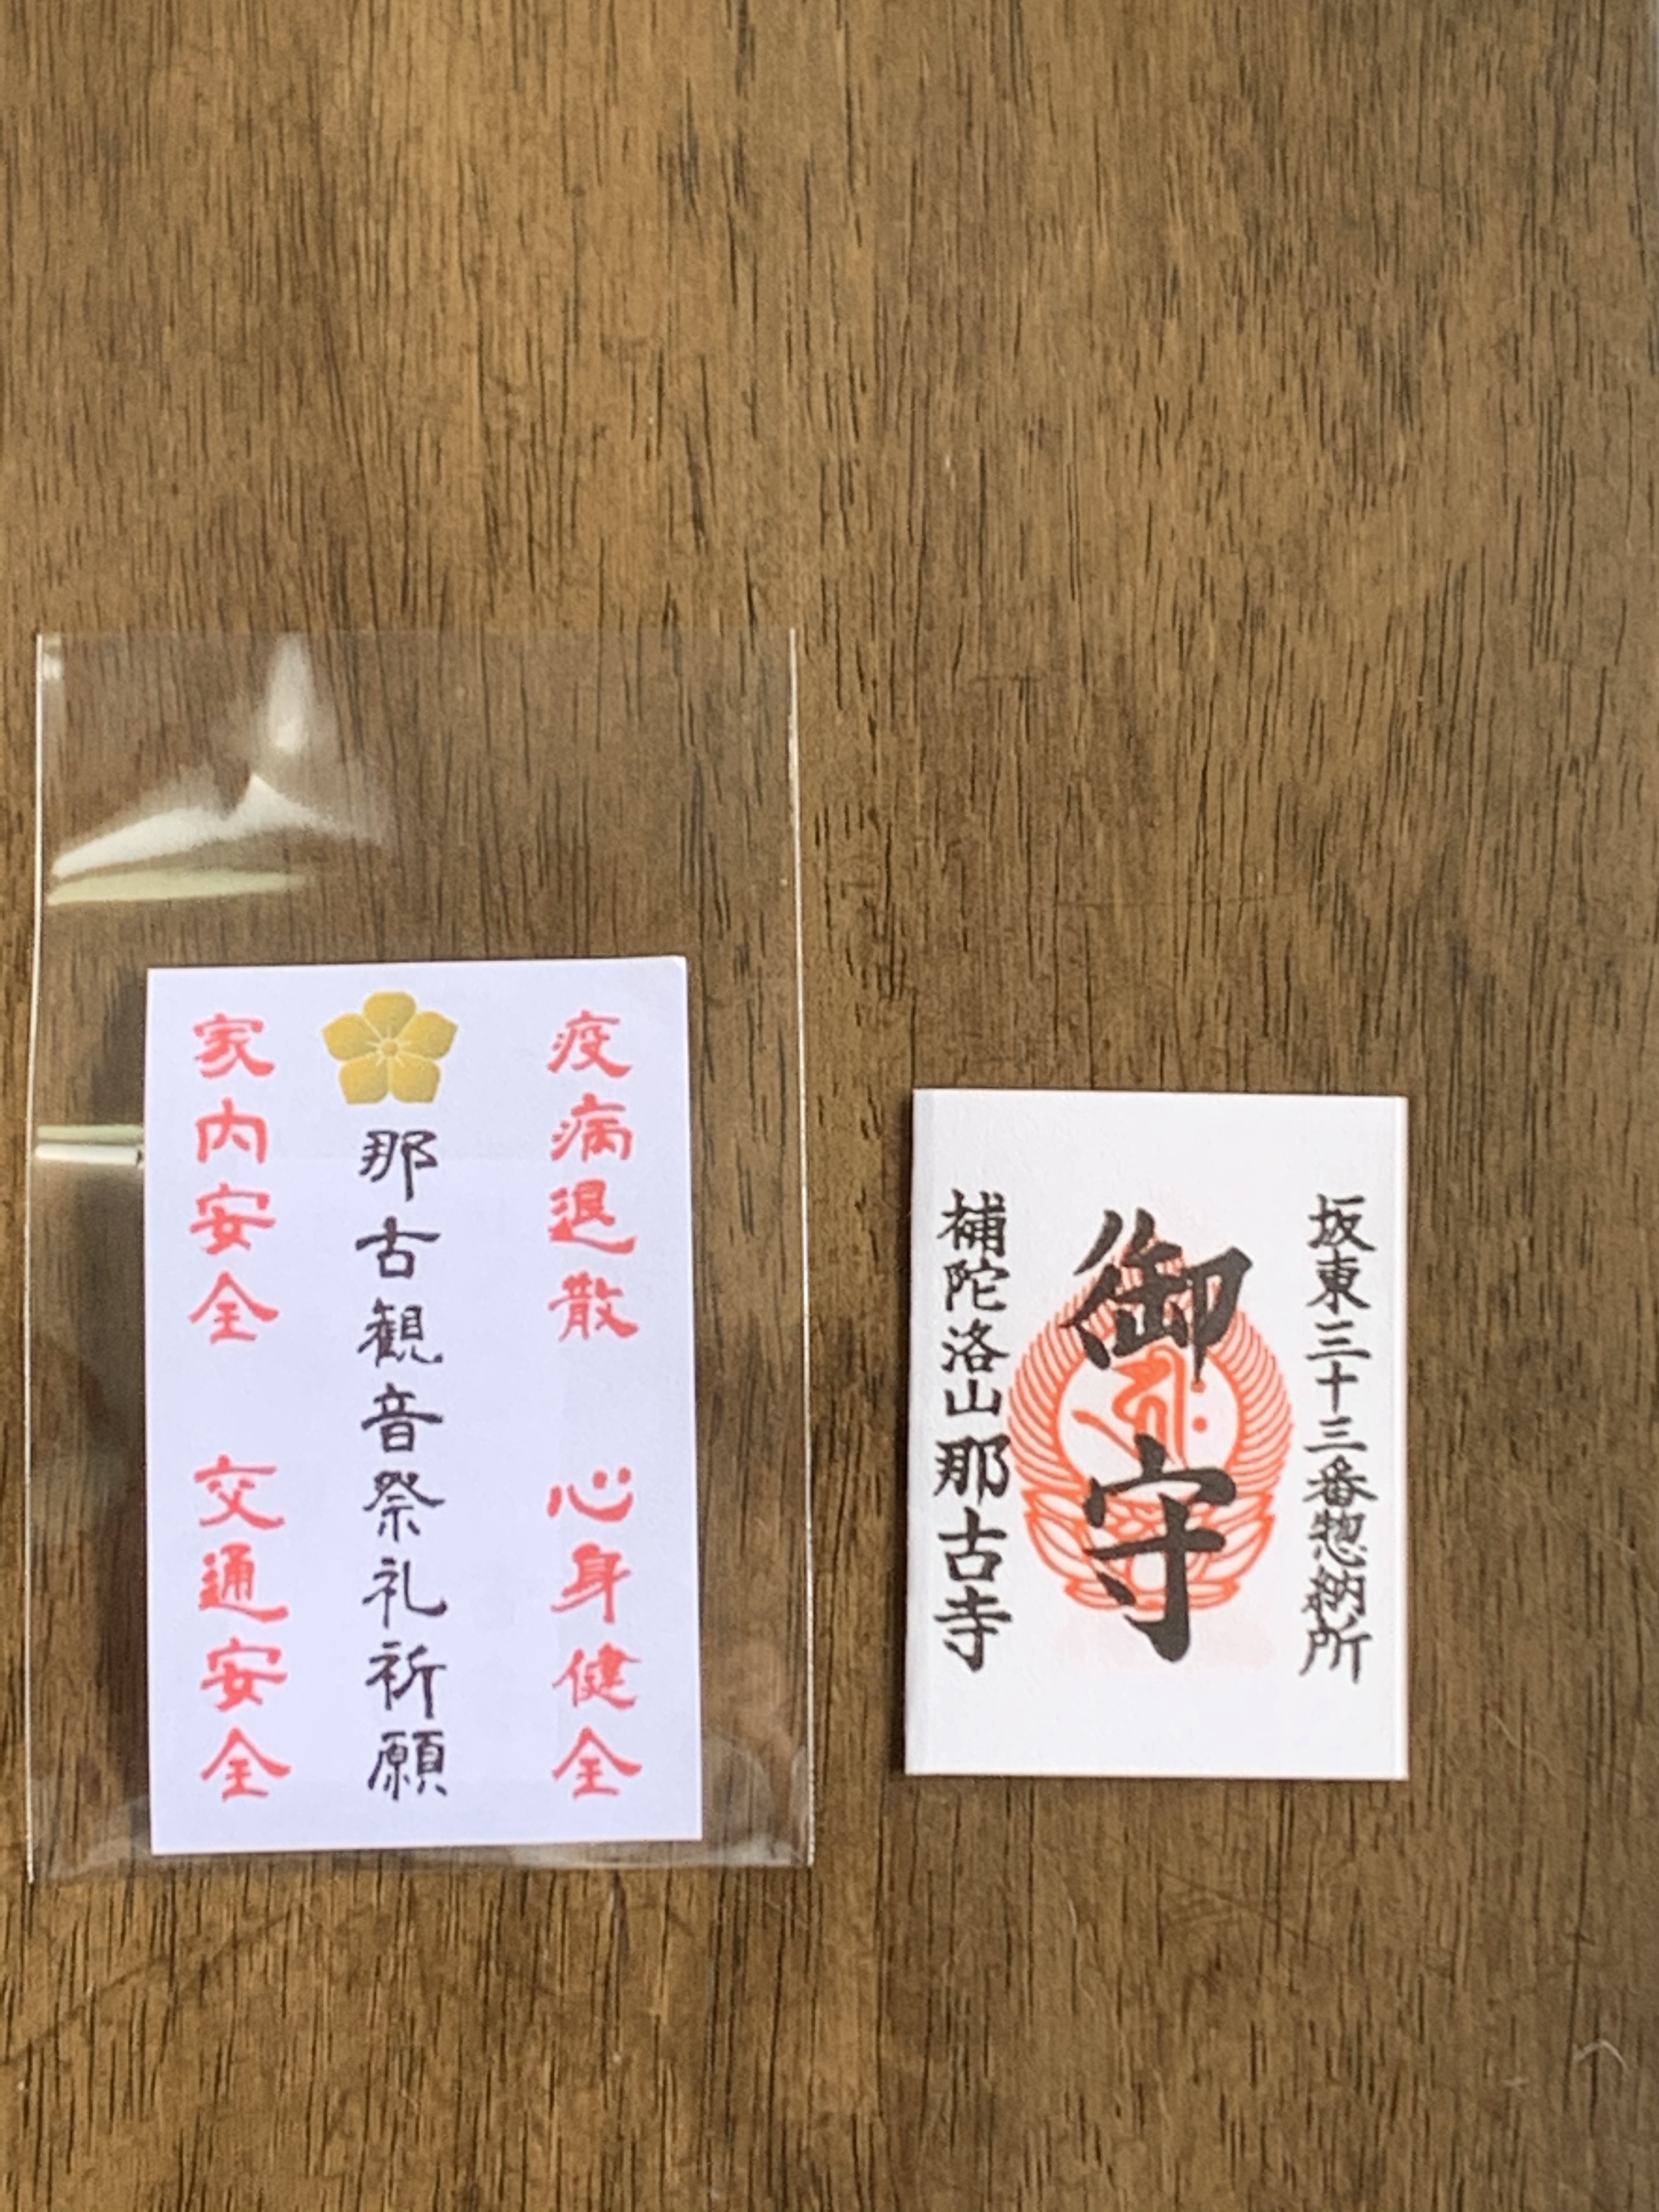 疫病退散 心身健全
那古観音祭礼祈願
家内安全 交通安全
坂東三十三番惣納所
御守
補陀洛山 那古寺